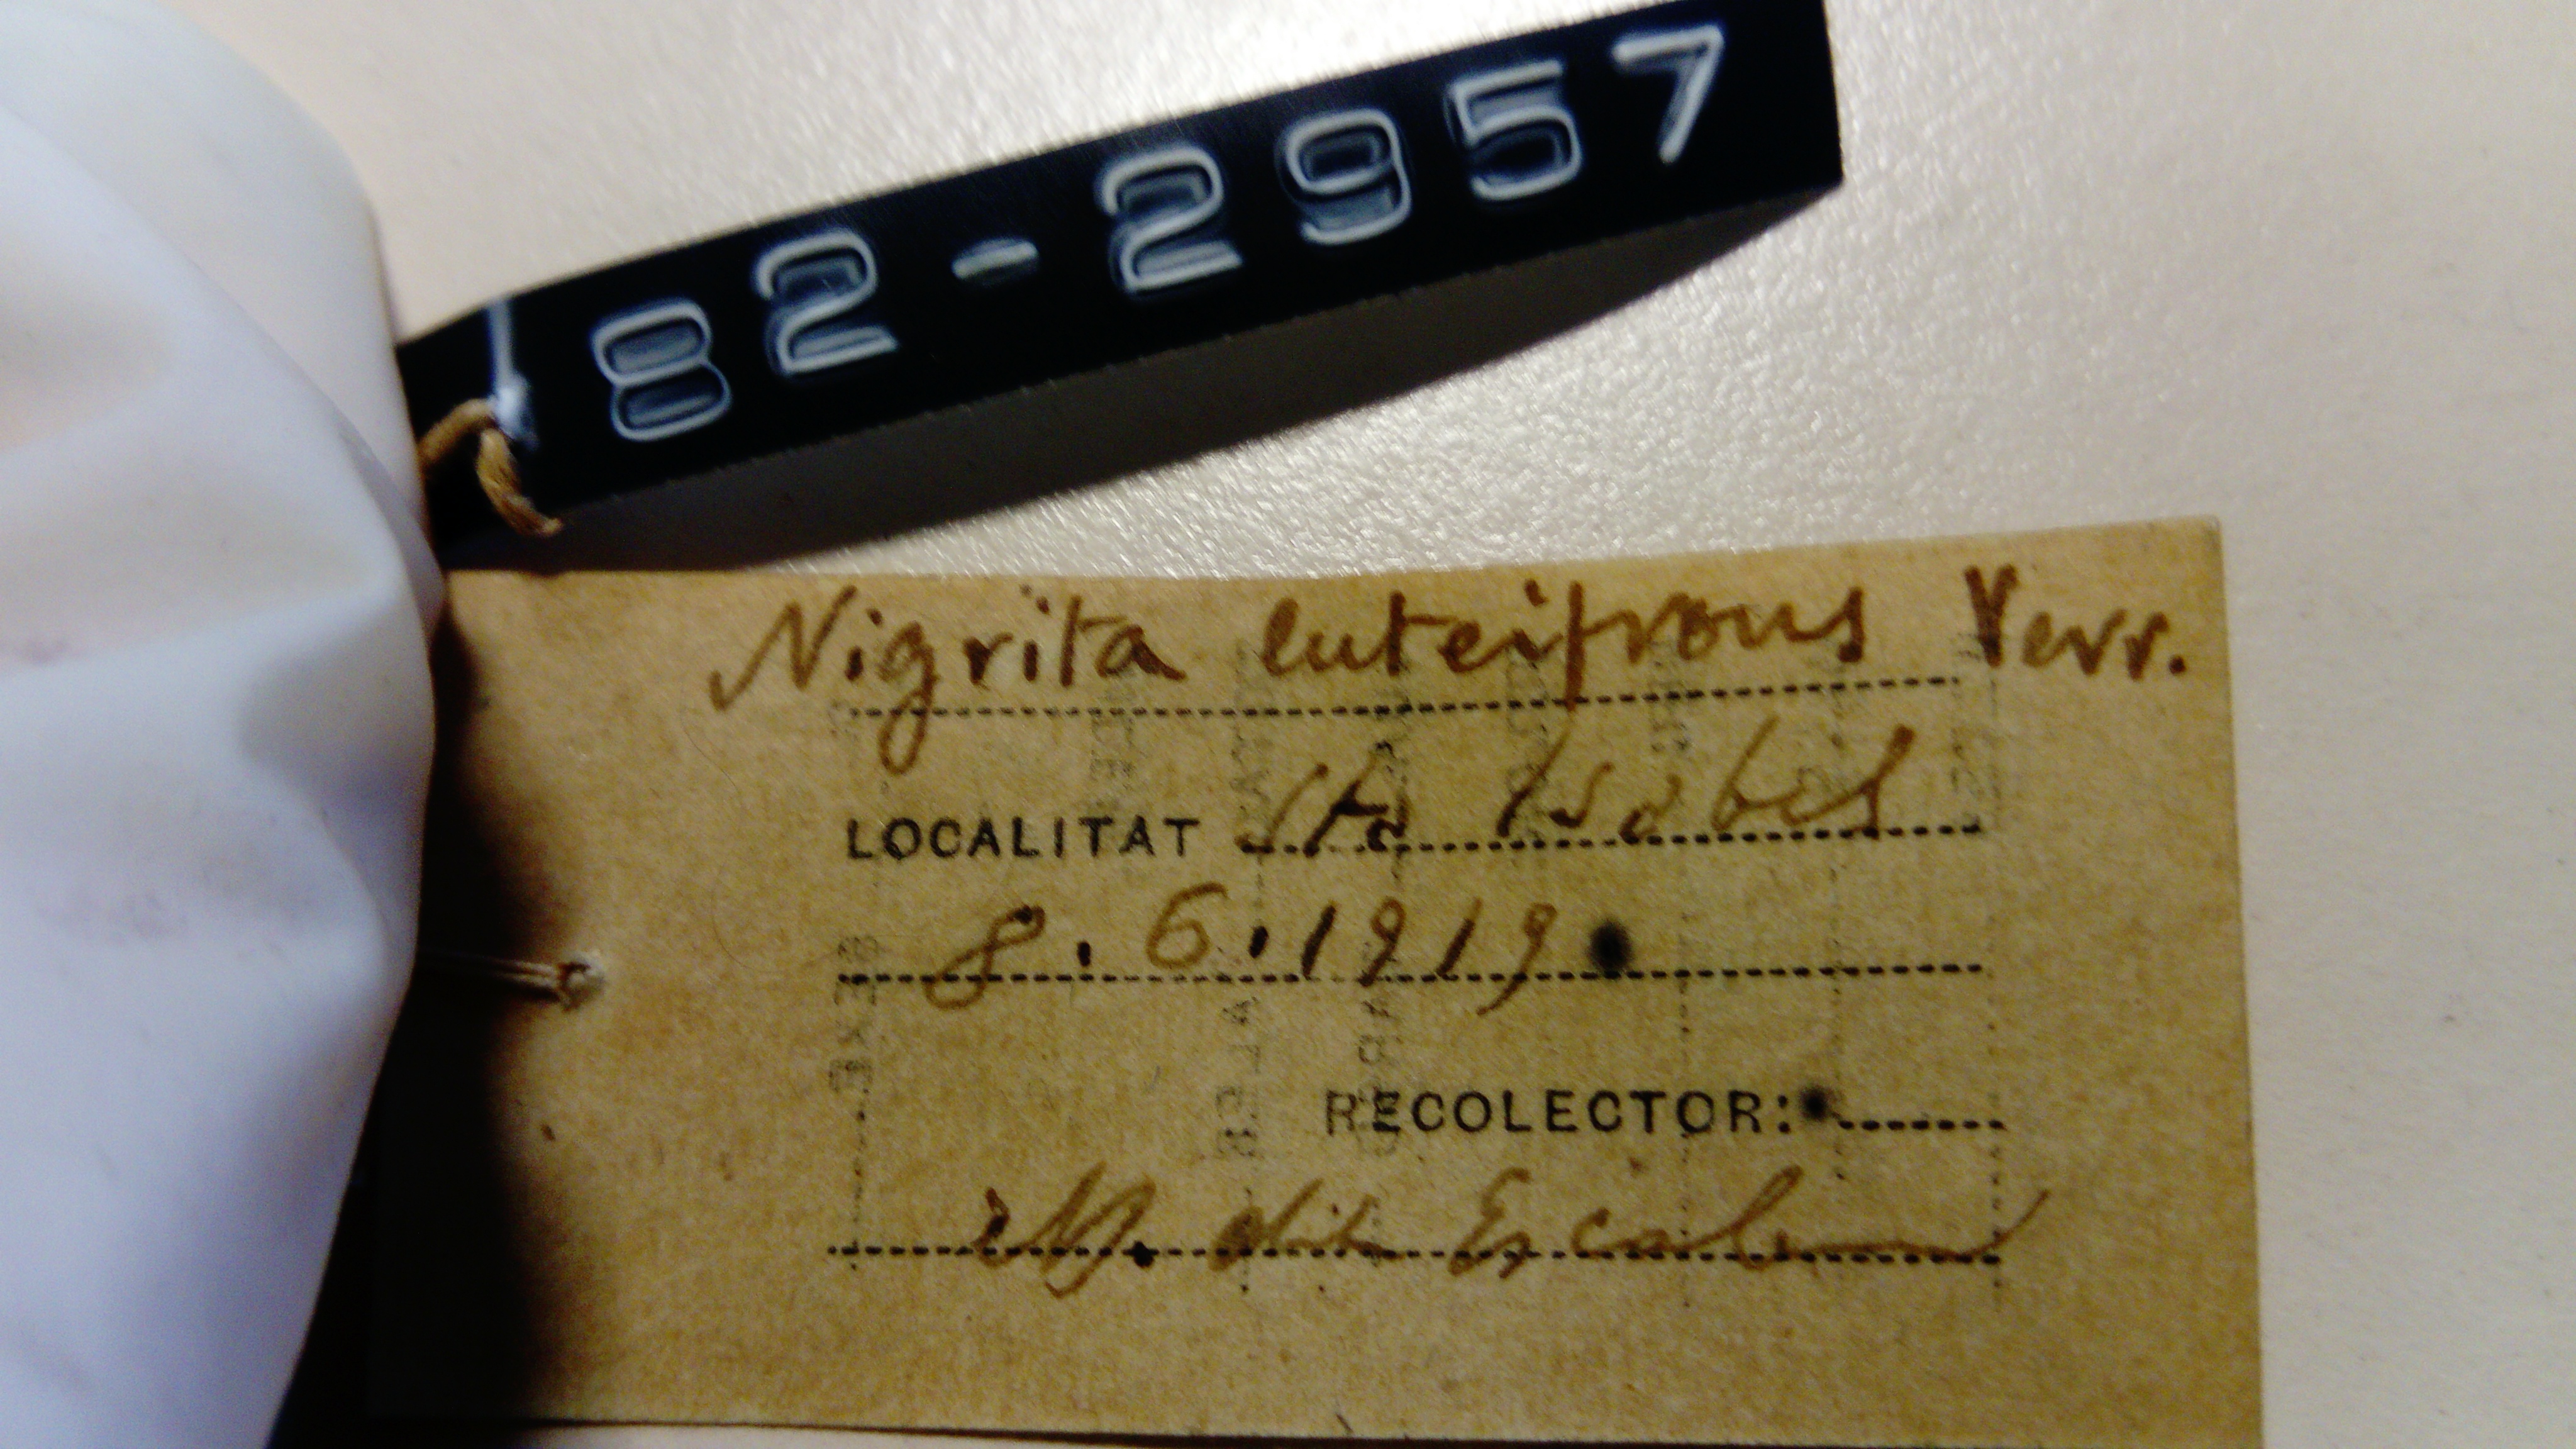 82-2957
Nigrita luteifrons Verr.
LOCALITAT Sta Isabel
8.6.1919
RECOLECTOR:
M. de Escalera